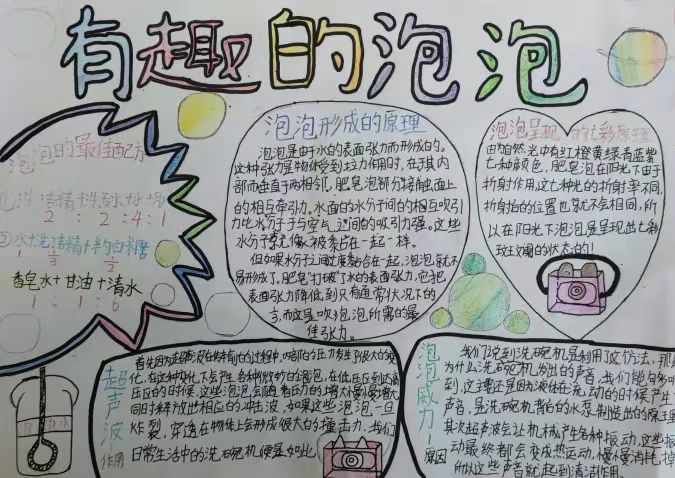 有趣的泡泡
泡泡的最佳配方
①洗洁精+洗发水+水+
2 : 2 : 4 : 1
②水+洗洁精+
1 1/2
香皂水+甘油+清水
1 : 1 : 6
泡泡形成的原理
泡泡是由于水的表面张力而形成的。
这种张力是物体受到拉力作用时,在于其内
部而垂直于两相邻,肥皂泡部分接触面上
的相互牵引力。水面的水分子间的相互吸引
力比水分子于与空气之间的吸引力强。这些
水分子就像被黏在一起一样。
但如果水分子之间过度黏合在一起,泡泡就不
易形成了。肥皂"打破"了水的表面张力,它把
表面张力降低到只有通常状况下的
而这是吹泡泡所需的最
佳张力。
泡泡呈现 的七彩原理
由为自然光中有红橙黄绿青蓝紫
七种颜色,肥皂泡在阳光下由于
折射作用,这七种光的折射率不同,
折射抬的位置也就不会相同,所
以在阳光下泡泡是呈现出七彩
斑斓的状态的!
超声波
作用
首先因为超声波在传播的过程中,内部的压力发生了很大的变
化,在这种变化下会产生各种微妙的溶泡,在低压区到达高
压区的时候,这些泡泡会随着压力的增大慢慢增大
同时释放出相应的冲击波,如果这些泡泡一旦
炸裂,穿透在物体上会形成很大的撞击力,我们
日常生活中的洗碗机便是如此
泡泡威力!
原因
我们说到洗碗机是利用这仿法,那
为什么洗碗机发出的声音,我们能够听
到,这主要还是因为液体在流动的时候产生
声音,是洗碗机背后的水泵制造出的原理
其次超声波会让机械产生各种振动,这些振
动最终都会变成热运动,慢慢消耗掉
所以这些声音就起到清洁作用。